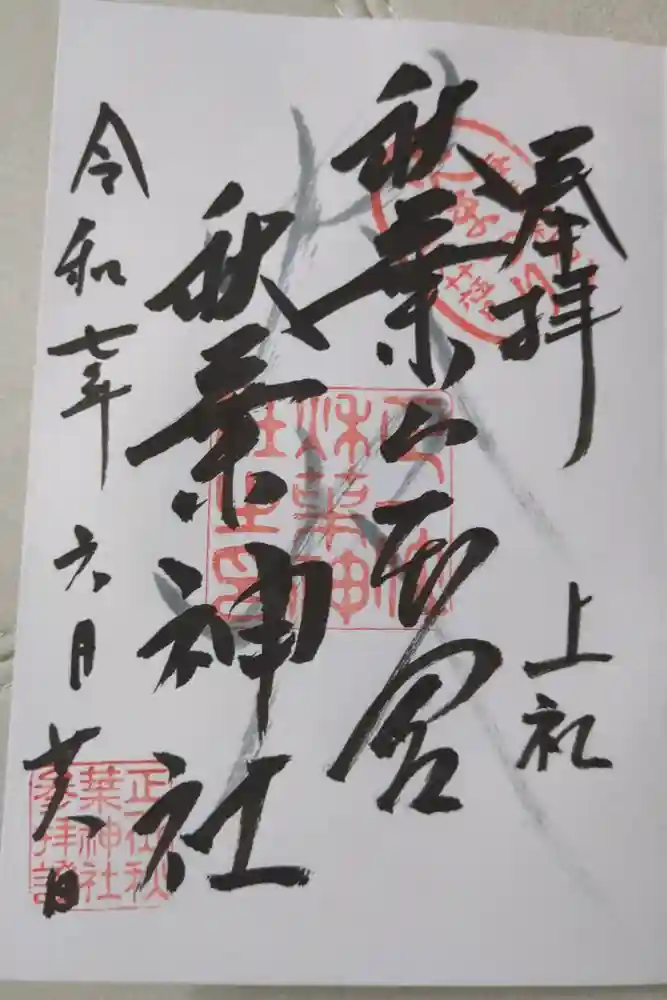 奉拝
上社
秋葉山本宮
秋葉神社
令和七年六月廿八日
正一位
秋葉神
社之印
正一位秋
葉神社
參拝證